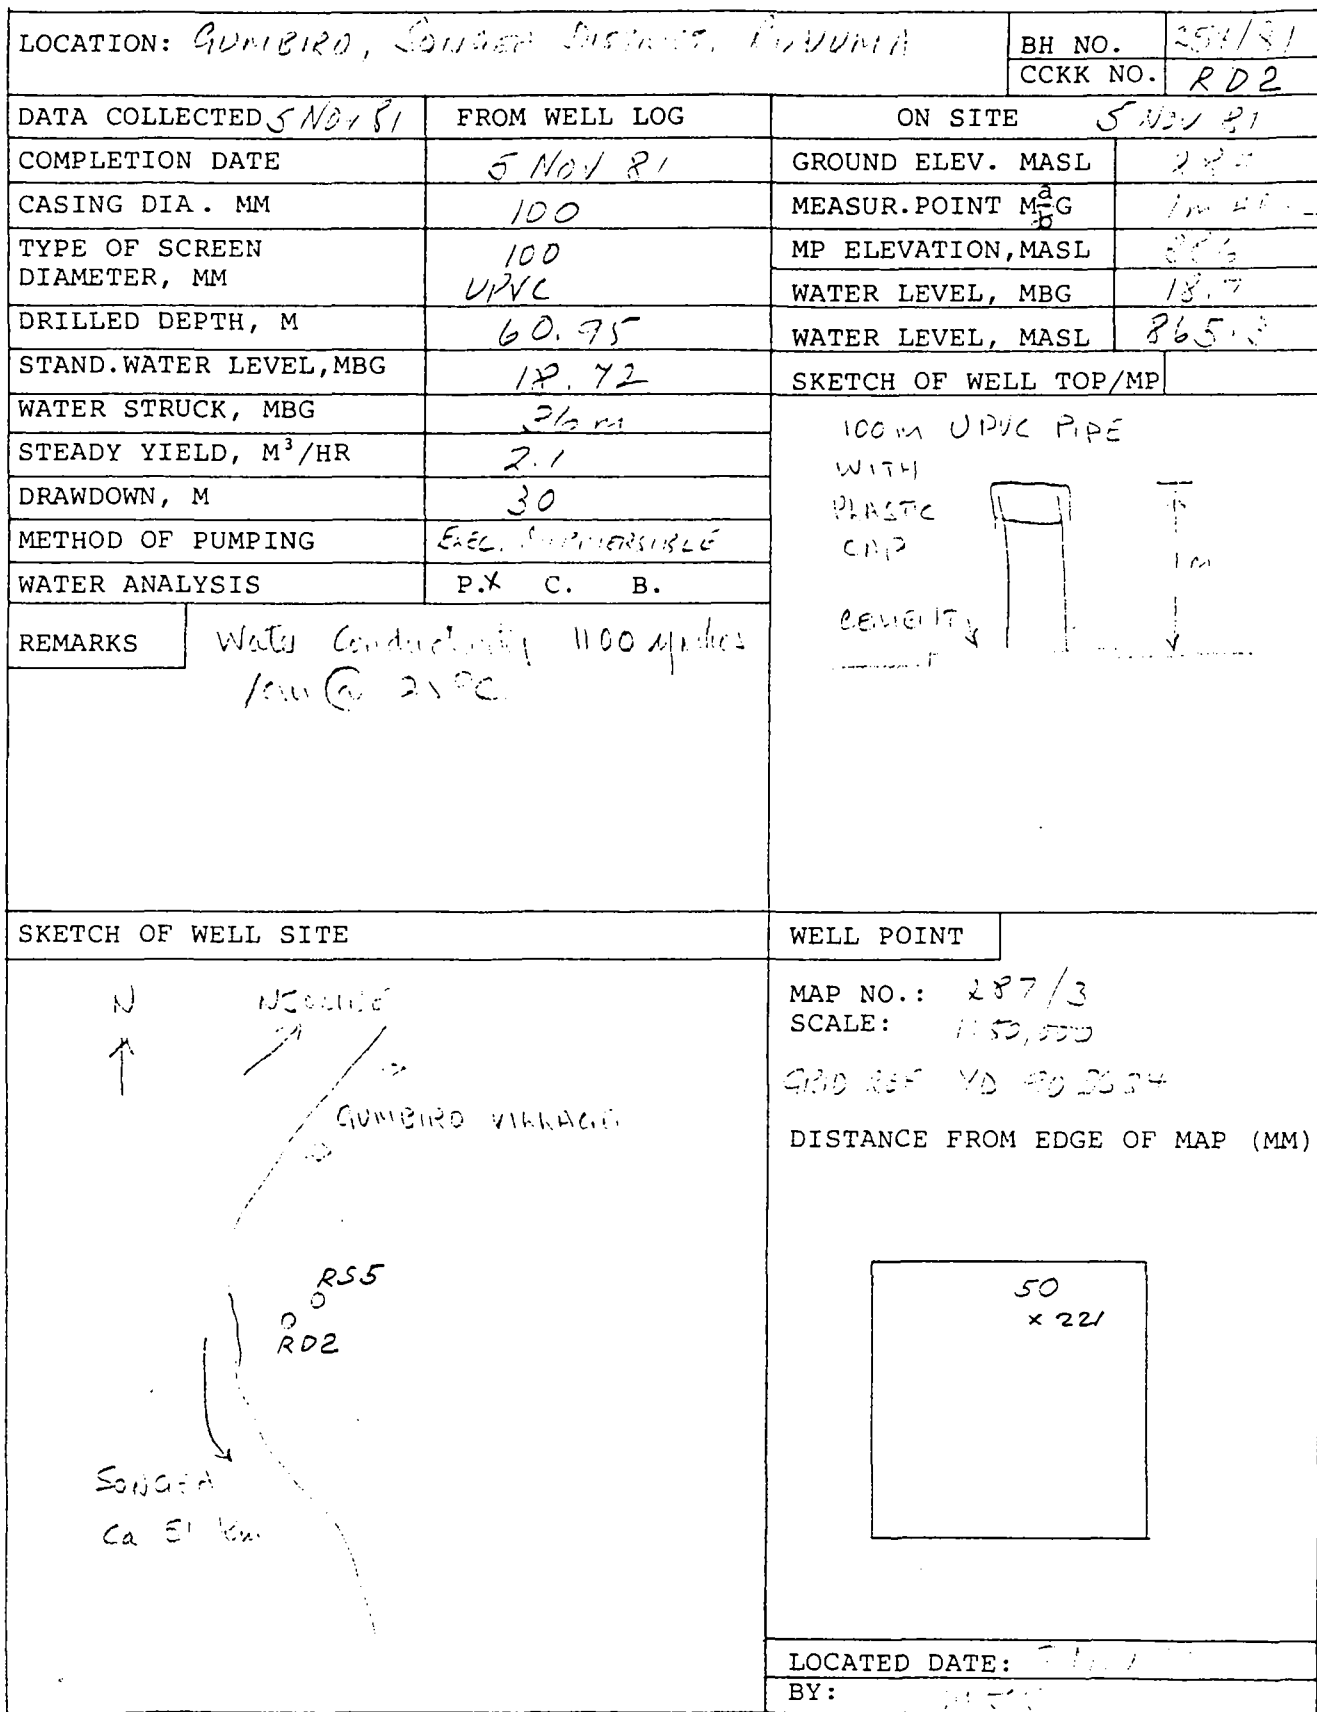 LOCATION: GUMBIRO, SONGEA DISTRICT, RUVUMA
BH NO. /81
CCKK NO. RD2
DATA COLLECTED 5 NOV 81 FROM WELL LOG
COMPLETION DATE 5 NOV 81
CASING DIA. MM 100
TYPE OF SCREEN 100
DIAMETER, MM UPVC
DRILLED DEPTH, M 60.95
STAND.WATER LEVEL,MBG 18.72
WATER STRUCK, MBG
STEADY YIELD, M³/HR 2.1
DRAWDOWN, M 30
METHOD OF PUMPING ELEC. SUBMERSIBLE
WATER ANALYSIS P.X C. B.
REMARKS Water Conductivity 1100 μmhos
/cm @ °C
ON SITE 5 NOV 81
GROUND ELEV. MASL
MEASUR.POINT M a/b G 1m
MP ELEVATION,MASL
WATER LEVEL, MBG 18.7
WATER LEVEL, MASL 865.3
SKETCH OF WELL TOP/MP
100 m UPVC PIPE
WITH
PLASTIC
CAP
1m
CEMENT
SKETCH OF WELL SITE
N NJOMBE
GUMBIRO VILLAGE
RS5
RD2
SONGEA
Ca km
WELL POINT
MAP NO.: 287/3
SCALE: 1:50,000
GRID REF YD
DISTANCE FROM EDGE OF MAP (MM)
50
x 221
LOCATED DATE:
BY: